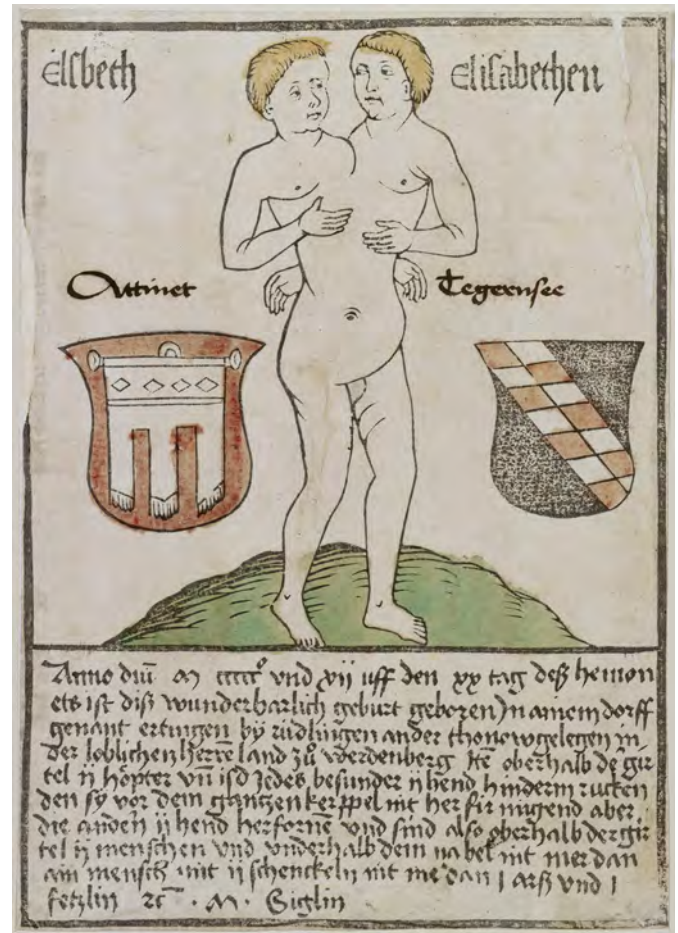 Elsbeth Elisabethen
Ottinet Tegernsee
Anno dm̄ M ccccc° vnd xij uff den xx tag deß hemon
ets ist diß wunderbarlich geburt geboren Jn ainem dorff
genant ertingen by rüdlingen an der thonow gelegen in
der loblichen herrē land zů werdenberg Itē oberhalb der gür
tel ij höpter vn̄ jedes besunder ij hend hinderm rucken
den sy vor dem gantzen nit herfir mügend aber
die andern ij hend herfornē vnd sind also oberhalb der gür
tel ij menschen vnd vnderhalb dem nabel nit mer dan
ain mensch mit ij schenckeln nit me dan j arß vnd j
fetzlin ꝛc · M · Siglin